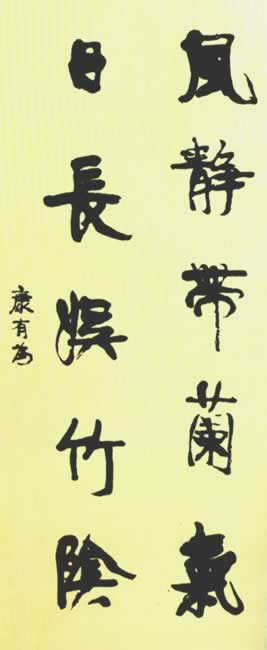 風靜帶蘭氣
日長娛竹陰
康有為